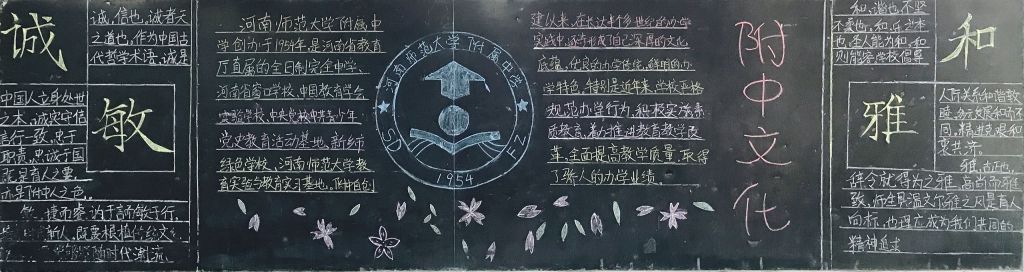 诚
诚,信也,诚者天
之道也,作为中国古
代哲学术语,诚是
中国人立身处世
之本,诚实守信
言行一致,忠于
职责,忠诚于国
亦是附中人之
敏
敏,捷而睿,讷于言而敏于行,
新人,既要根植传统文
时代潮流。
河南师范大学附属中
学创办于1954年,是河南省教育
厅直属的全日制完全中学、
河南省窗口学校、中国教育学会
实验学校、中央党校中青
党史教育活动基地、新师
绿色学校、河南师范大学教
育实验与教育实习基地。附中自创
河南师范大学附属中学
SD
FZ
1954
建以来,在长达半个多世纪的办学
实践中,逐渐形成了自己深厚的文化
底蕴、优良的办学传统、鲜明的办
学特色。特别是近年来,学校严格
规范办学行为,积极实施素
质教育,着力推进教育教学改
革,全面提高教学质量,取得
了骄人的办学业绩。
附中文化
和
和,谐也,不坚
不柔也。和
圣人能为和,和
则能容,学校倡导
人际关系和谐敦
睦,多元发展和而不
同,精进克艰和
衷共济。
雅
雅,古正也,
辞令就得为之雅,高尚而雅
致,师生眼温文尔雅之风是育人
向标,也理应成为我们共同的
精神追求